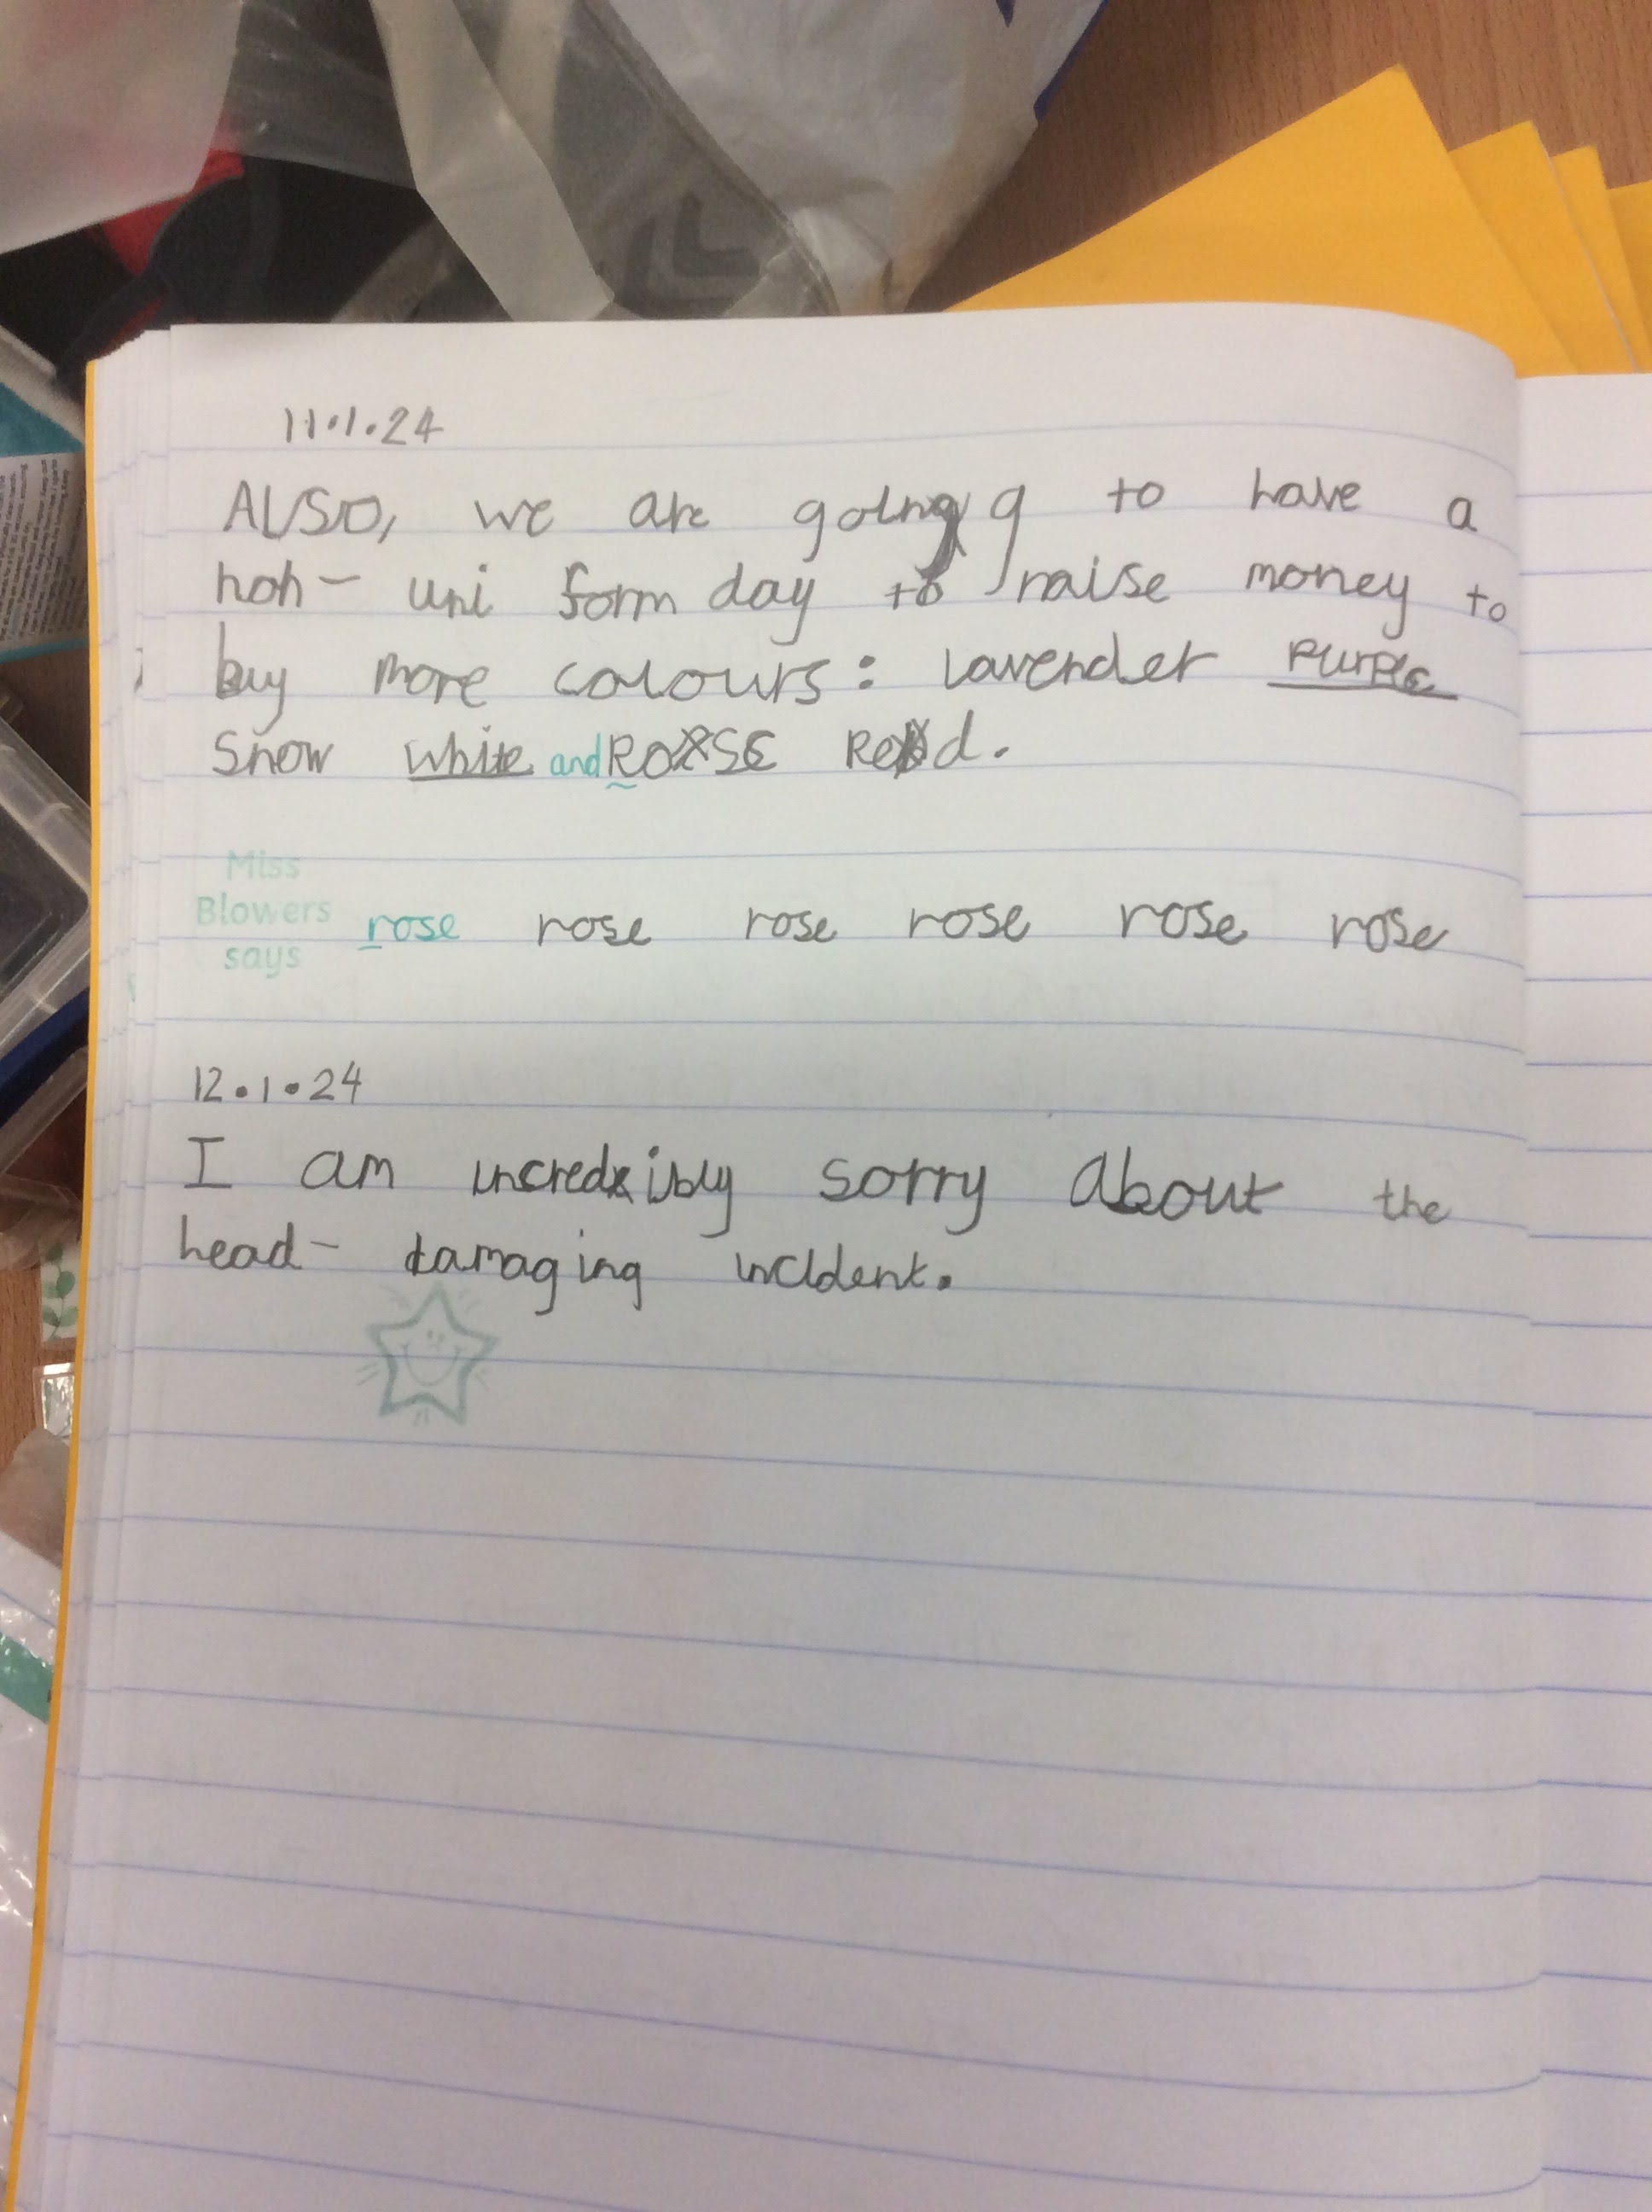 11.1.24
Also, we are going to have a
non- uni form day to raise money to
buy more colours: lavender purple
Snow white and Rose Red.
Miss
Blowers
says
rose rose rose rose rose rose
12.1.24
I am incredibly sorry about the
head- damaging incident.